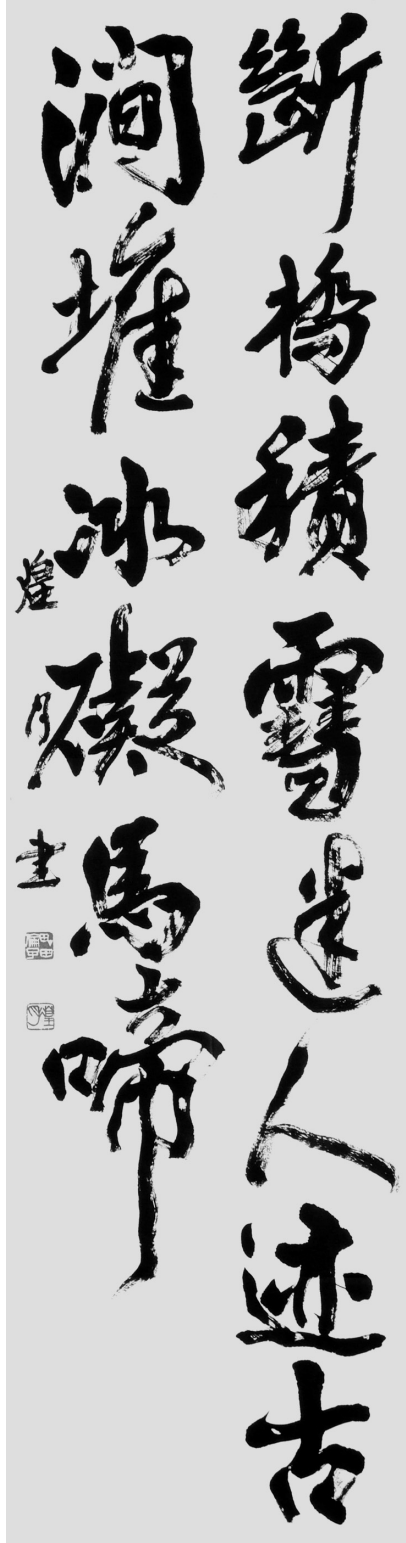 斷橋積雪迷人迹古
澗堆冰礙馬啼
煌月書